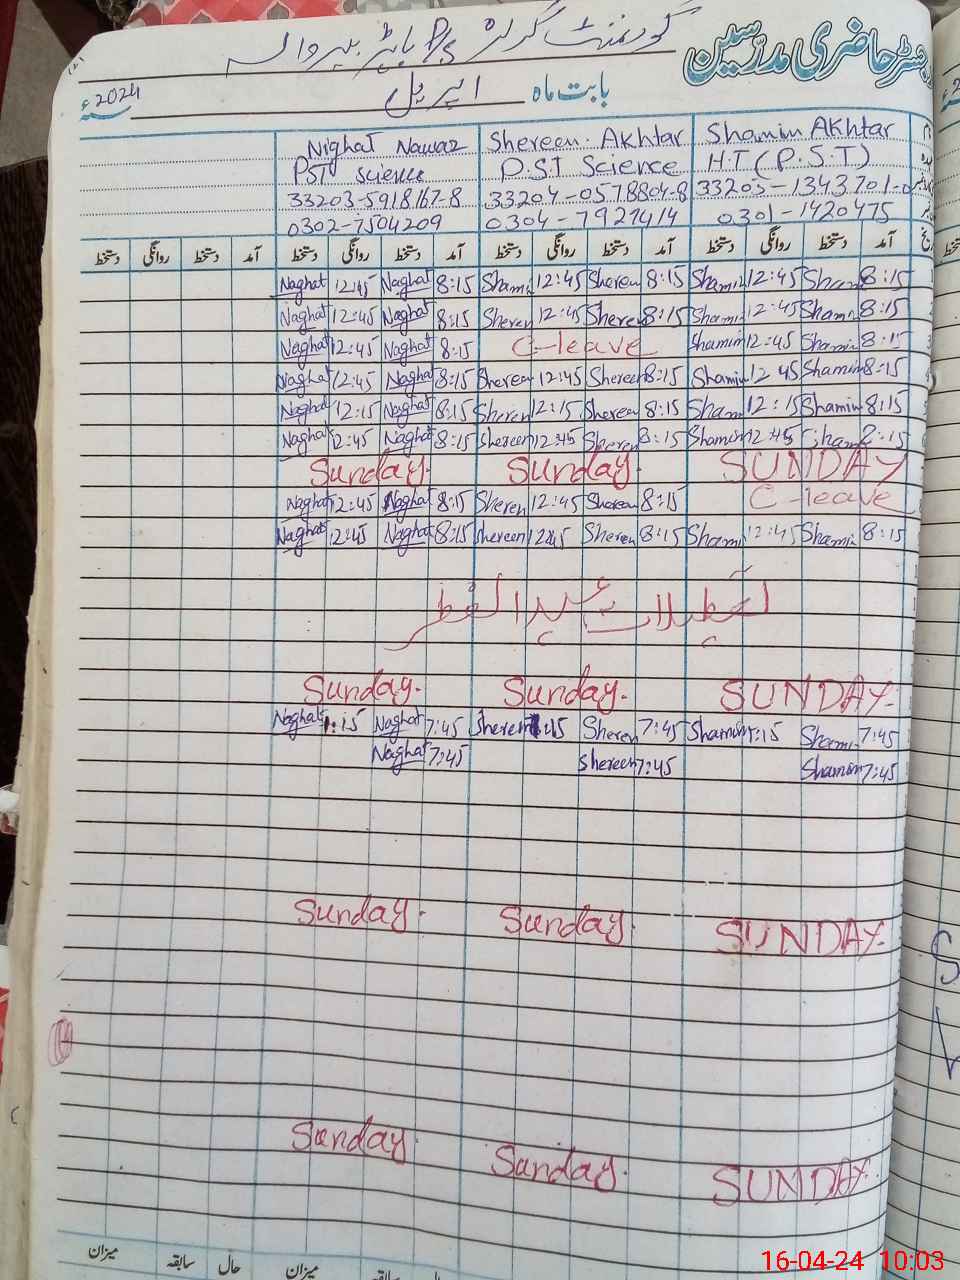 رجسٹر حاضری مدرسین گورنمنٹ گرلز
بابت ماہ اپریل 2024ء
Nighat Nawaz Shereen Akhtar Shamim Akhtar
PST Science P.S.T Science H.T (P.S.T)
33203-5918167-8 33204-0578804-8 33203-1343701-
0302-7504209 0304-7927414 0301-1420475
آمد دستخط روانگی دستخط آمد دستخط روانگی دستخط آمد دستخط روانگی دستخط آمد دستخط روانگی دستخط
Naghat 12:45 Naghat 8:15 Shami 12:45 Sheren 8:15 Shamin 12:45 Sham 8:15
Naghat 12:45 Naghat 8:15 Sheren 12:45 Shere 8:15 Shami 12:45 Sham 8:15
Naghat 12:45 Naghat 8:15 C-leave Shamim 12:45 Shami 8:15
Naghat 12:45 Naghat 8:15 Shereen 12:45 Shereen 8:15 Shamim 12 45 Shamim 8:15
Naghat 12:15 Naghat 8:15 Sheren 12:15 Shereen 8:15 Sham 12:15 Shamim 8:15
Naghat 12:45 Naghat 8:15 Shereen 12:45 Sheren 8:15 Shamim 12:45 Sham 8:15
Sunday. Sunday. SUNDAY
Naghat 12:45 Naghat 8:15 Sheren 12:45 Shereen 8:15 C-leave
Naghat 12:45 Naghat 8:15 Shereen 12:45 Sheren 8:15 Shami 12:45 Shamim 8:15
تعطیلات عید الفطر
Sunday. Sunday. SUNDAY.
Naghat 1:15 Naghat 7:45 Sheren Sheren 7:45 Shamim 1:15 Shami 7:45
Naghat 7:45 Shereen 7:45 Shamim 7:45
Sunday. Sunday. SUNDAY.
Sunday Sunday. SUNDAY.
میزان حال سابقہ میزان
16-04-24 10:03